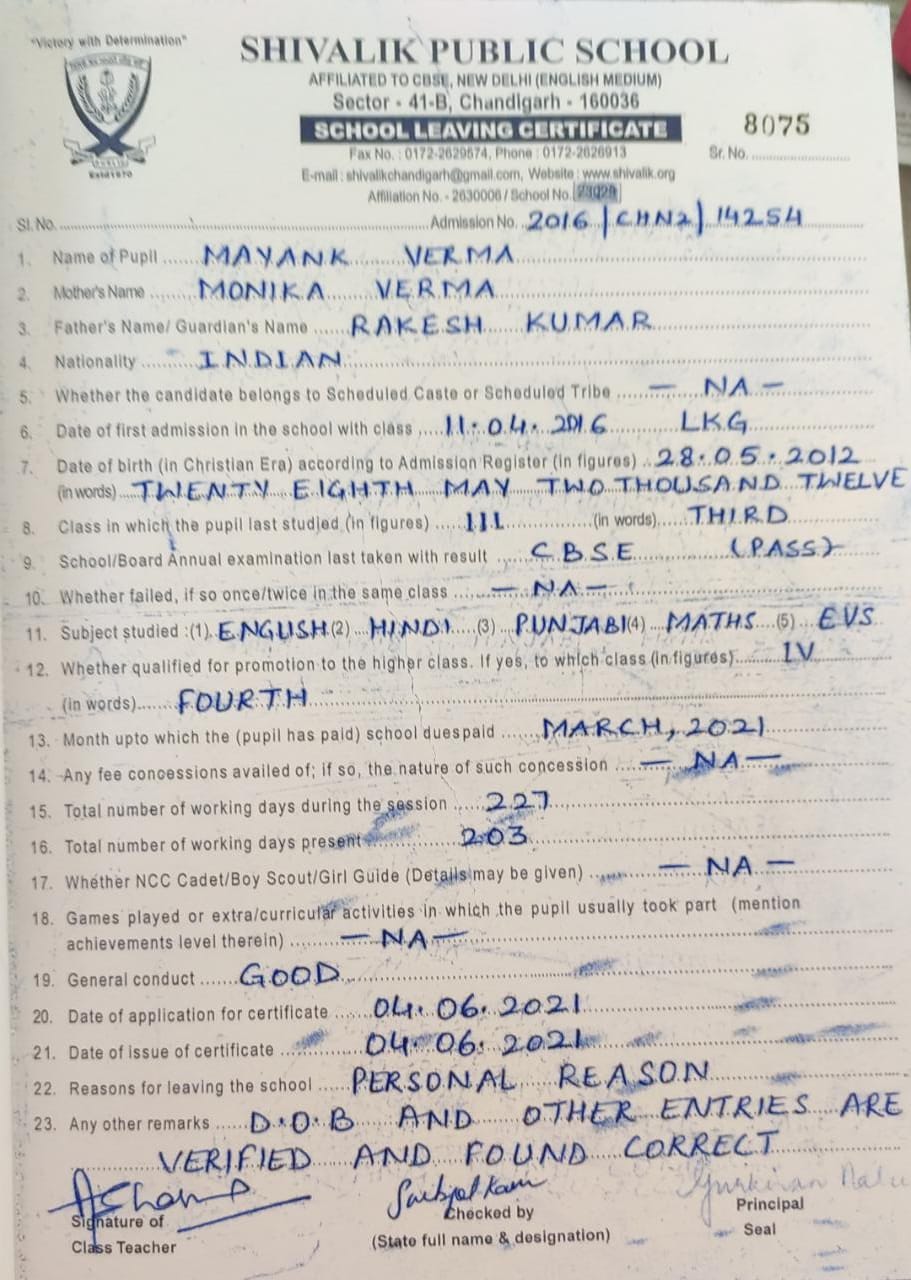 "Victory with Determination"
SHIVALIK PUBLIC SCHOOL
AFFILIATED TO CBSE, NEW DELHI (ENGLISH MEDIUM)
Sector - 41-B, Chandigarh - 160036
SCHOOL LEAVING CERTIFICATE
8075
Fax No. : 0172-2629674, Phone : 0172-2626913
Sr. No.
E-mail : shivalikchandigarh@gmail.com, Website : www.shivalik.org
Affiliation No. - 2630006 / School No.
Sl. No. Admission No. 2016/CHN2/14254
1. Name of Pupil MAYANK VERMA
2. Mother's Name MONIKA VERMA
3. Father's Name/ Guardian's Name RAKESH KUMAR
4. Nationality INDIAN
5. Whether the candidate belongs to Scheduled Caste or Scheduled Tribe — NA —
6. Date of first admission in the school with class 11.04.2016 LKG
7. Date of birth (in Christian Era) according to Admission Register (in figures) 28.05.2012
(in words) TWENTY EIGHTH MAY TWO THOUSAND TWELVE
8. Class in which the pupil last studied (in figures) III (in words) THIRD
9. School/Board Annual examination last taken with result CBSE (PASS)
10. Whether failed, if so once/twice in the same class — NA —
11. Subject studied :(1) ENGLISH (2) HINDI (3) PUNJABI (4) MATHS (5) EVS
12. Whether qualified for promotion to the higher class. If yes, to which class (in figures) IV
(in words) FOURTH
13. Month upto which the (pupil has paid) school duespaid MARCH, 2021
14. Any fee concessions availed of; if so, the nature of such concession — NA —
15. Total number of working days during the session 227
16. Total number of working days present 203
17. Whether NCC Cadet/Boy Scout/Girl Guide (Details may be given) — NA —
18. Games played or extra/curricular activities in which the pupil usually took part (mention
achievements level therein) — NA —
19. General conduct GOOD
20. Date of application for certificate 04.06.2021
21. Date of issue of certificate 04.06.2021
22. Reasons for leaving the school PERSONAL REASON
23. Any other remarks D.O.B AND OTHER ENTRIES ARE
VERIFIED AND FOUND CORRECT
Signature of
Class Teacher
Checked by
(State full name & designation)
Principal
Seal